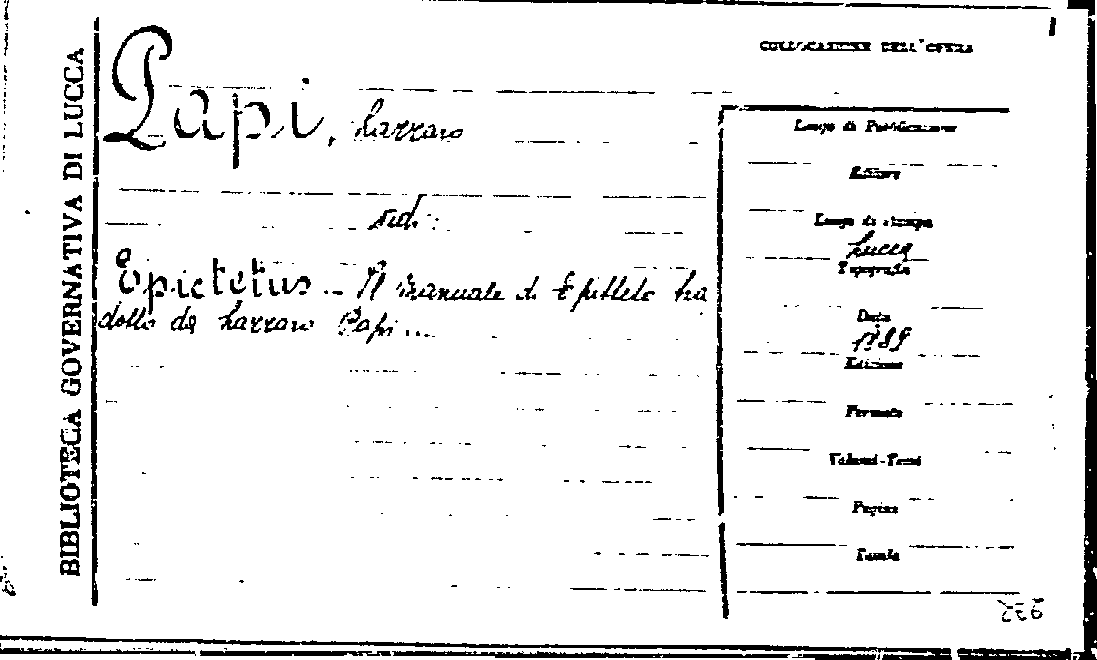 BIBLIOTECA GOVERNATIVA DI LUCCA
COLLOCAZIONE DELL'OPERA
Papi, Lazzaro
ved:
Epictetus - Il Manuale di Epitteto tra
dotto da Lazzaro Papi...
Luogo di Pubblicazione
Editore
Luogo di stampa
Lucca
Tipografia
Data
Edizione
Formato
Volumi-Tomi
Pagine
Tavole